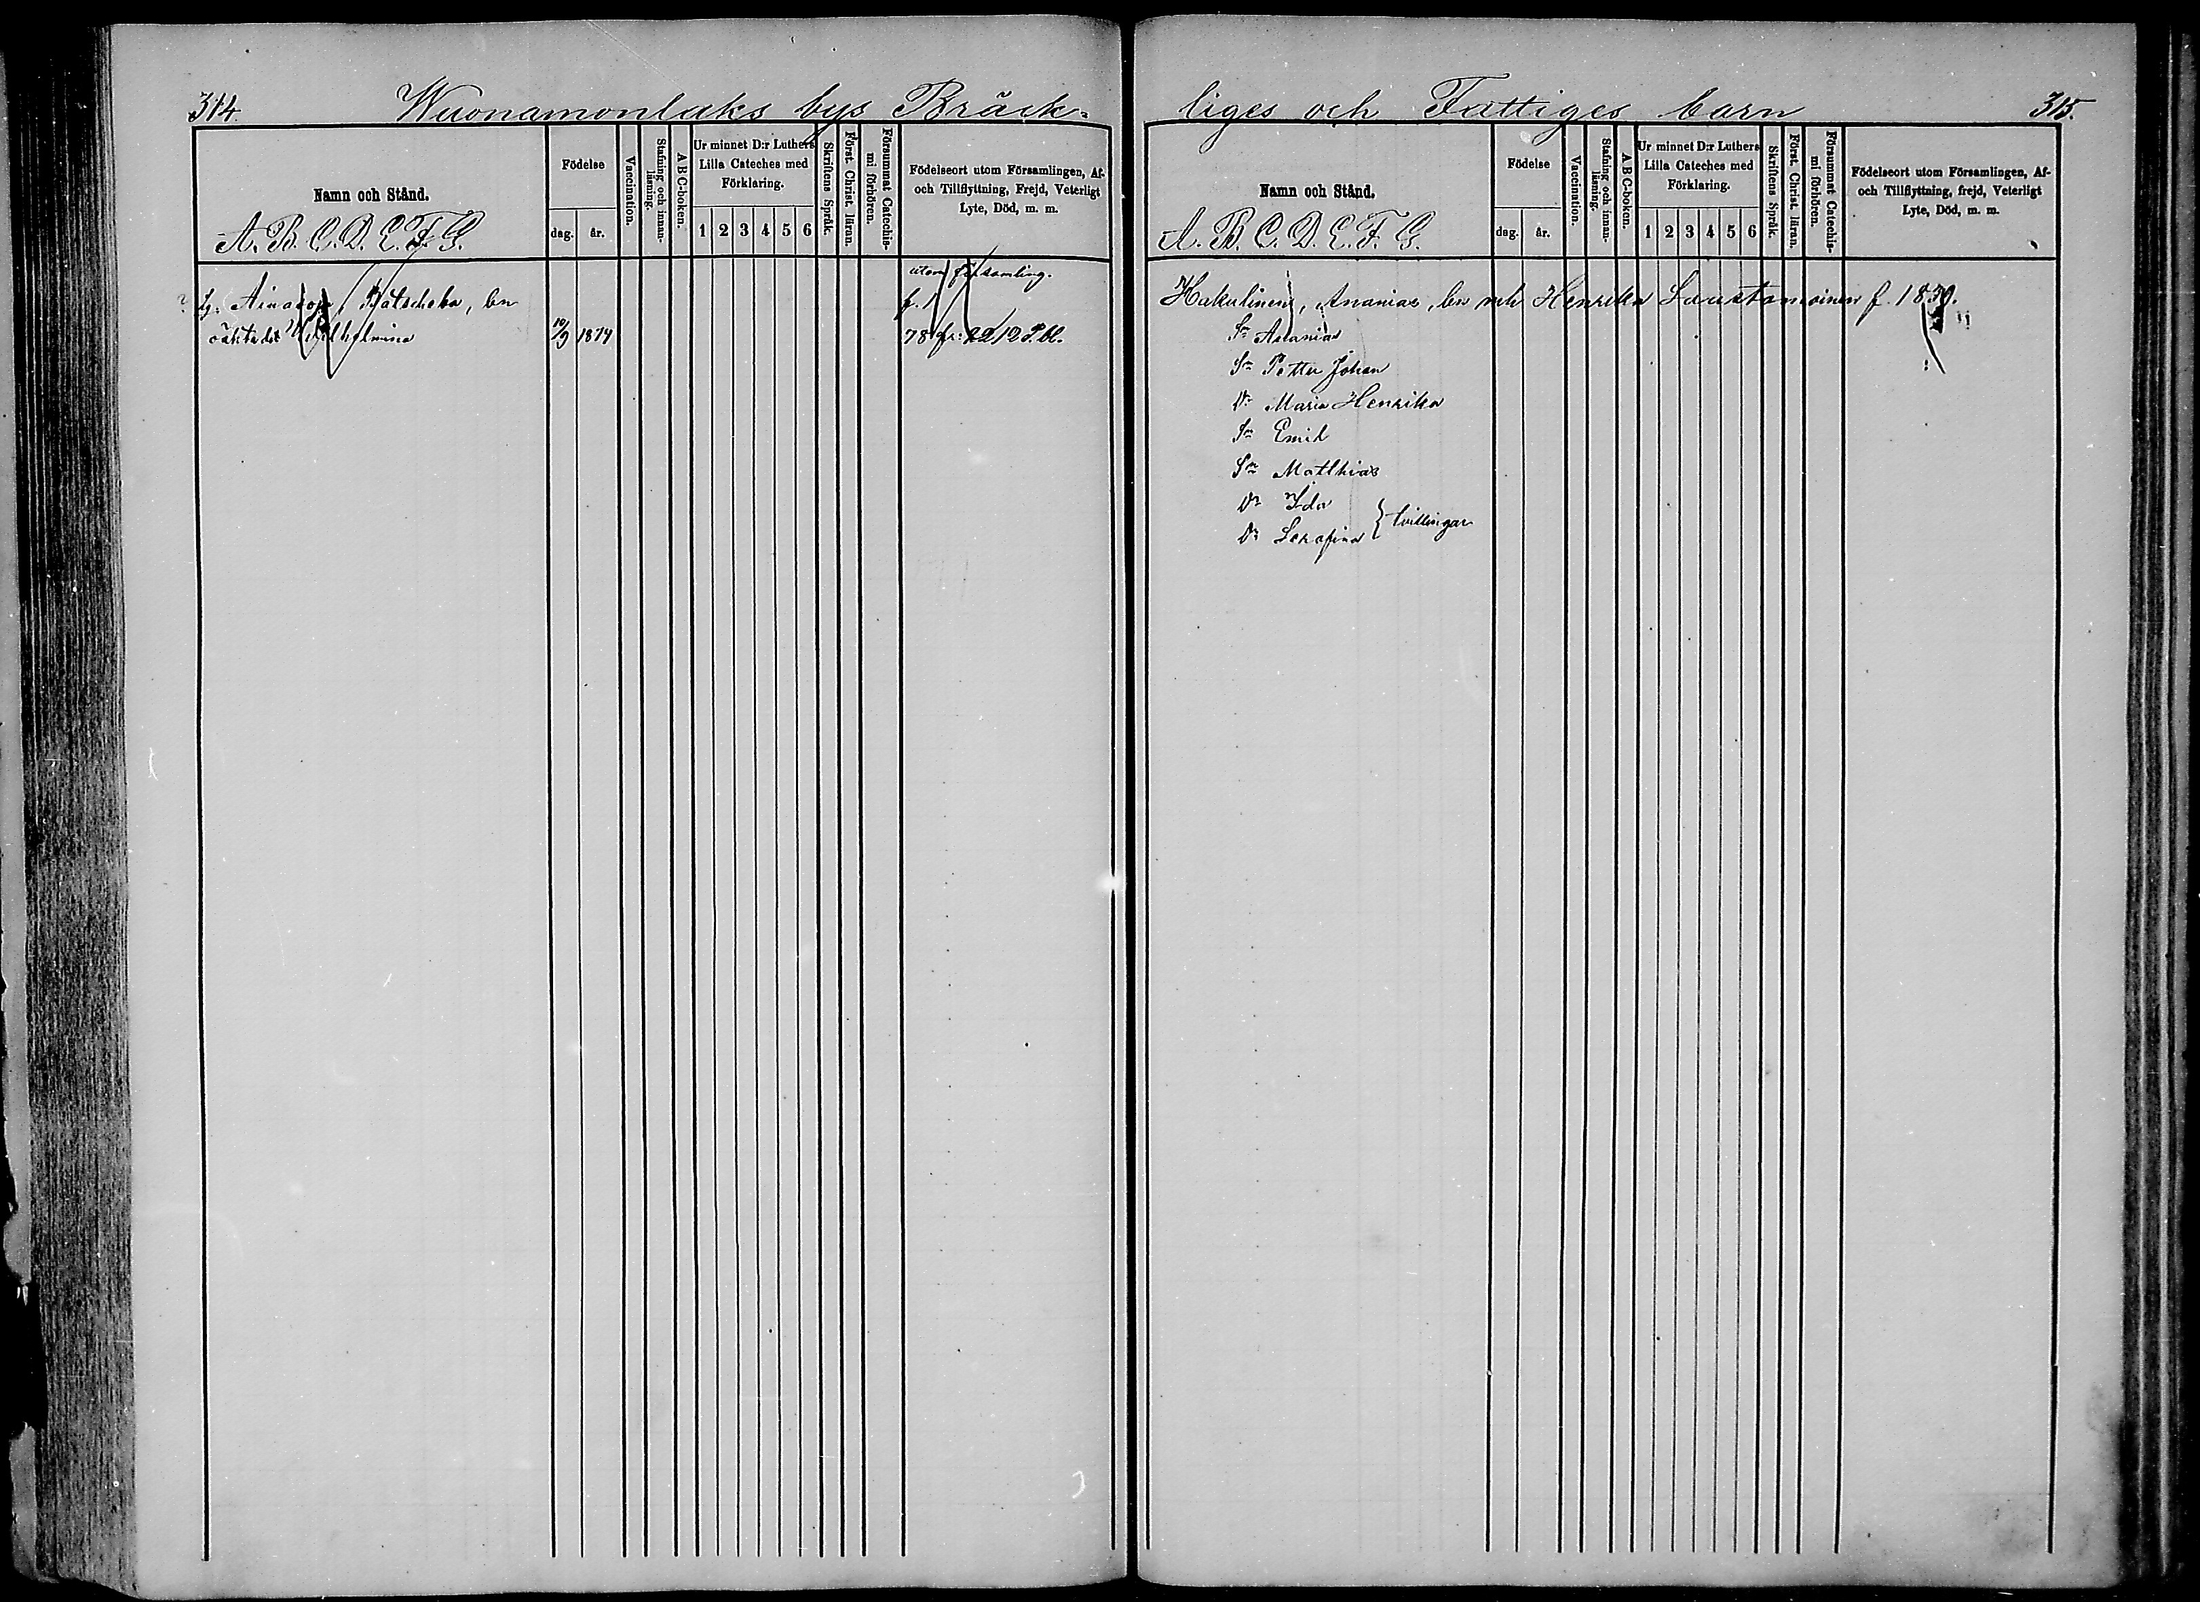 314. Wuonamonlaks bys Bräck-
Namn och Stånd.
A. B. C. D. E. F. G.
Födelse
dag. år.
Vaccination.
Stafning och innan-
läsning.
A B C-boken.
Ur minnet D:r Luthers
Lilla Cateches med
Förklaring.
1 2 3 4 5 6
Skriftens Språk.
Först. Christ. läran.
Försummat Catechis-
mi förhören.
Födelseort utom Församlingen, Af-
och Tillflyttning, Frejd, Veterligt
Lyte, Död, m. m.
utom församling.
Batscheba, bn
f.
oäkta dot Wilhelmina 10/9 1874
78
liges och Fattiges barn 315.
Namn och Stånd.
A. B. C. D. E. F. G.
Födelse
dag. år.
Vaccination.
Stafning och innan-
läsning.
A B C-boken.
Ur minnet D:r Luthers
Lilla Cateches med
Förklaring.
1 2 3 4 5 6
Skriftens Språk.
Först. Christ. läran.
Försummat Catechis-
mi förhören.
Födelseort utom Församlingen, Af-
och Tillflyttning, frejd, Veterligt
Lyte, Död, m. m.
Hakulinen, Ananias, bn och Henrika Laustamoinen f. 1839.
Sn Ananias
Sn Petter Johan
Dr Maria Henrika
Sn Emil
Sn Matthias
Dr Ida
Dr Serafina } tvillingar